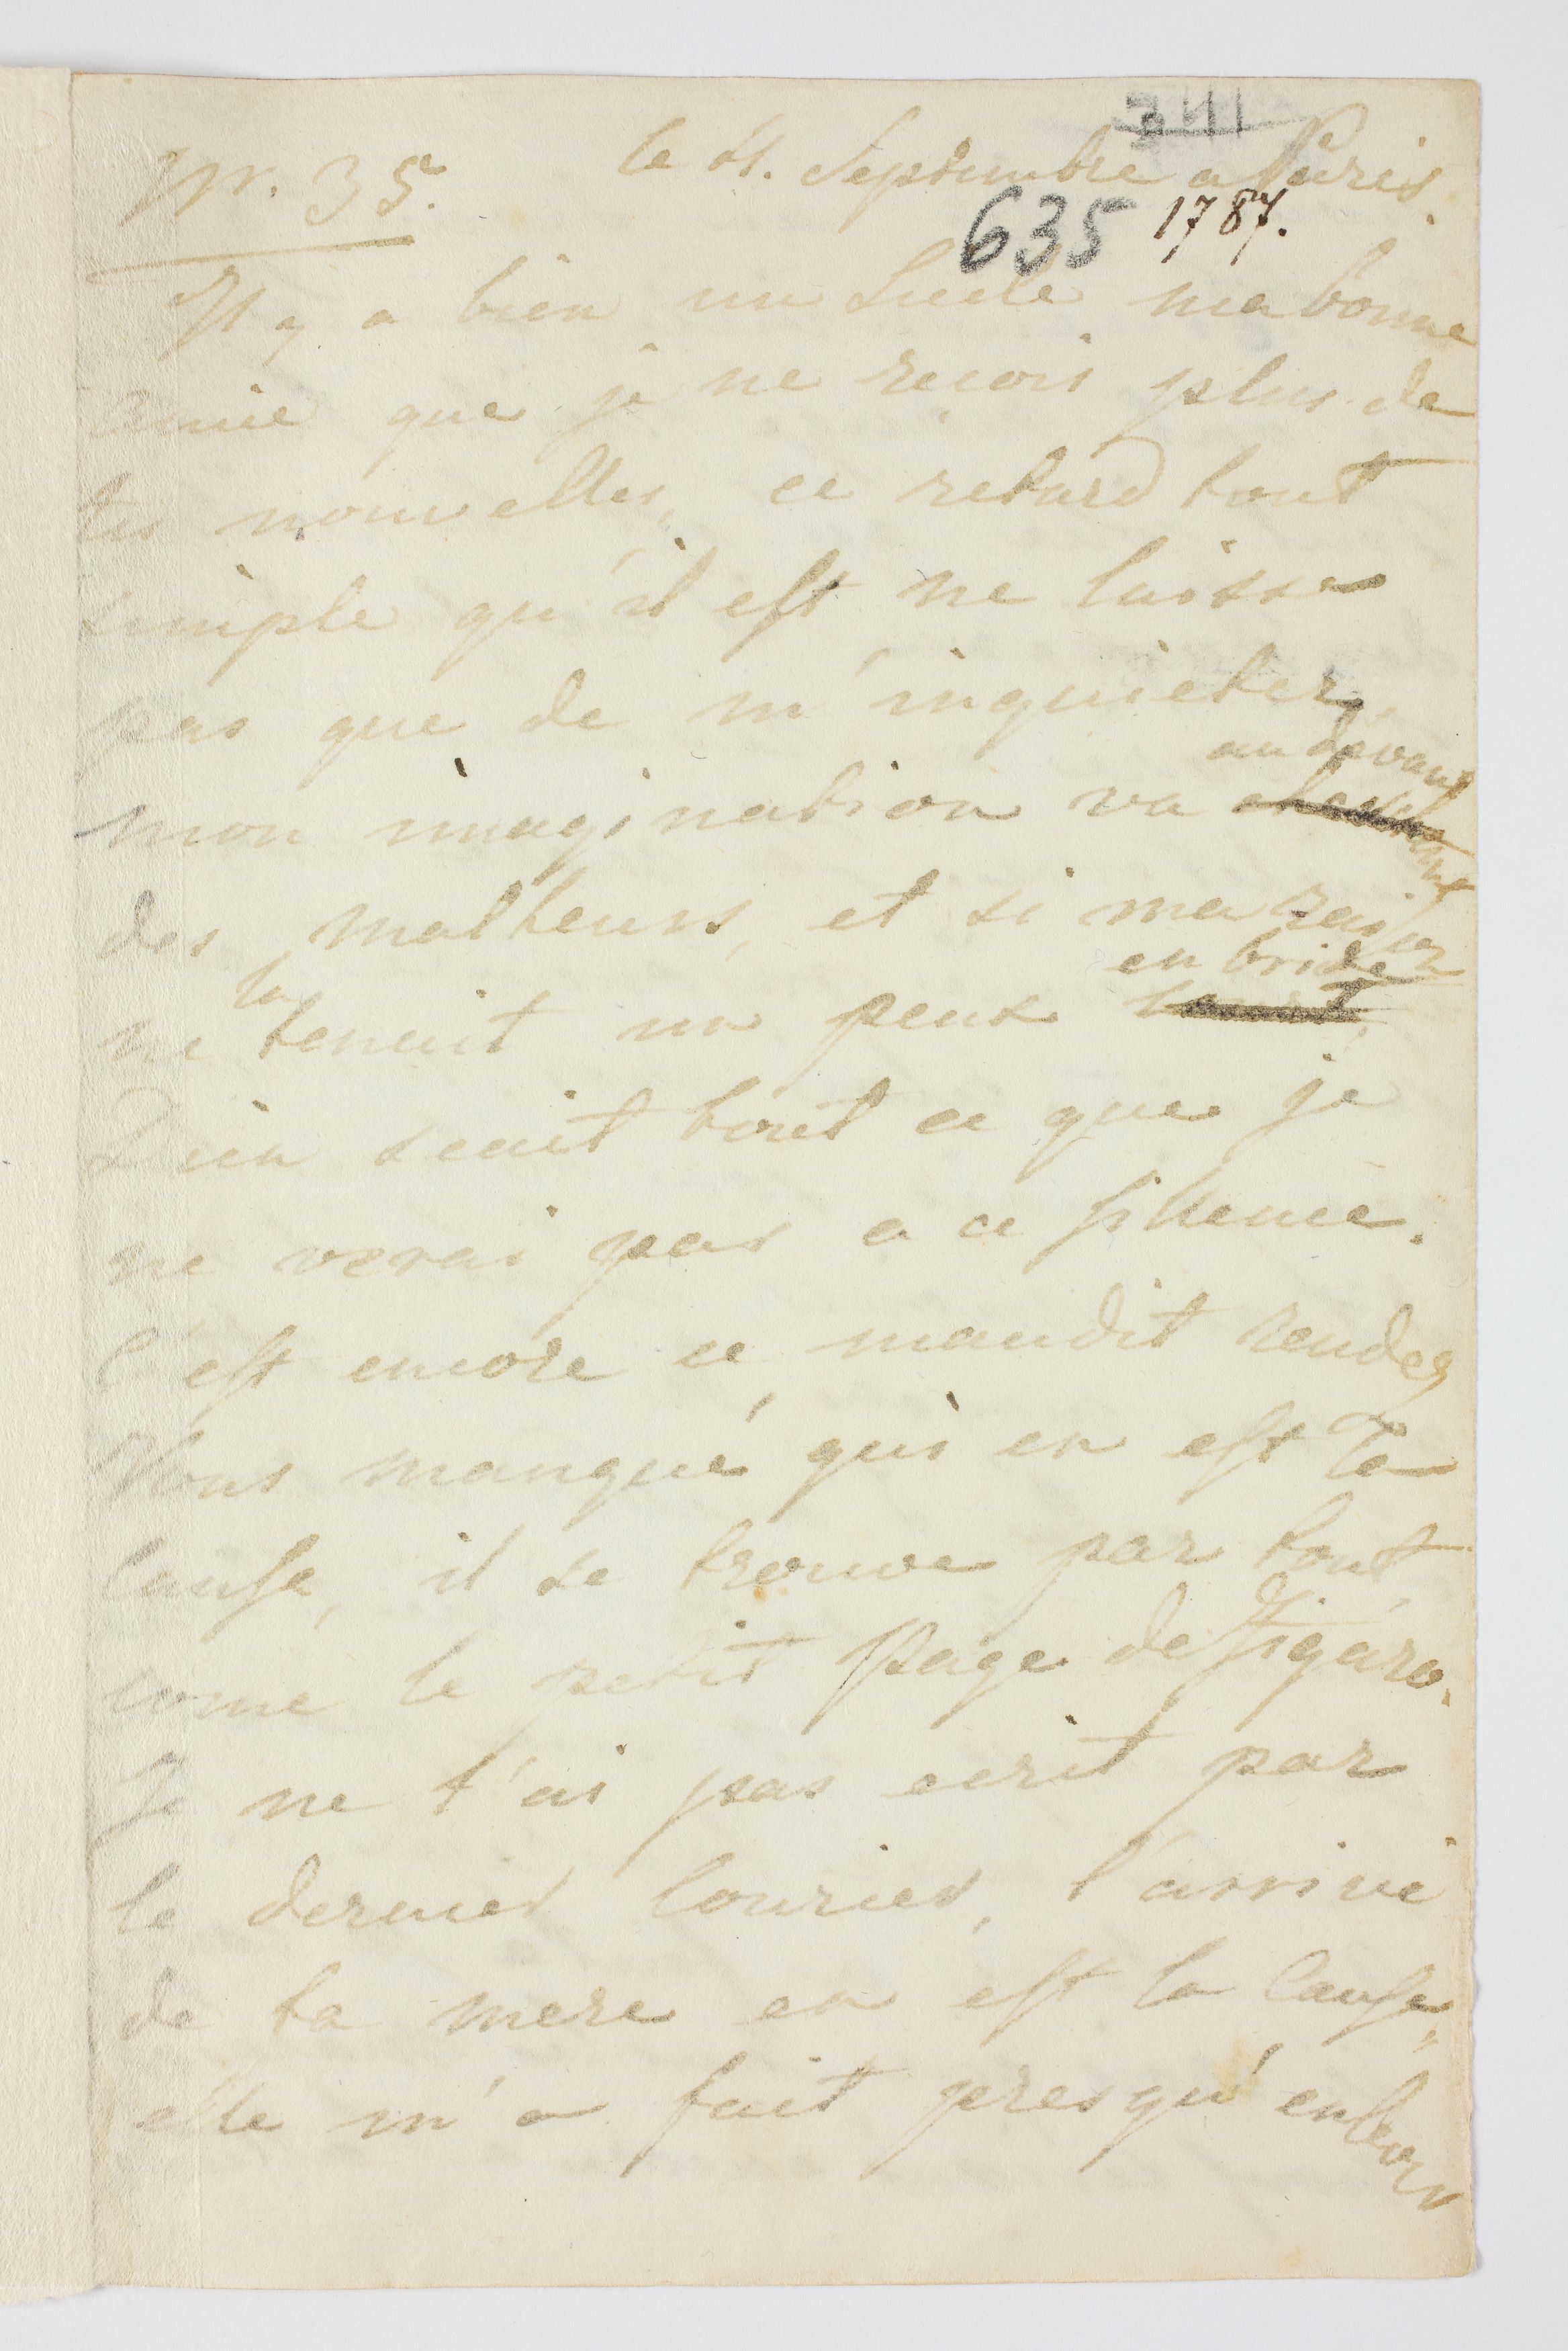 341
Nr. 35. le 21. Septembre a Paris.
635 1787.
Il y a bien un Siecle ma bonne
amie que je ne reçois plus de
tes nouvelles, ce retard tout
simple qu'il est ne laisse
pas que de m'inquieter,
au devant
mon imagination va
des malheurs, et si ma raison
la en bride
ne tenait un peux
Dieu scait tout ce que je
ne verai pas a ce silence.
C'est encore ce maudit rendez
Vous manqué qui en est la
Cause, il se trouve par tout,
come le petit Page de Figaro.
Je ne t'ai pas ecrit par
le dernier Courier, l'arrivé
de ta mere en est la Cause,
elle m'a fait presqu'